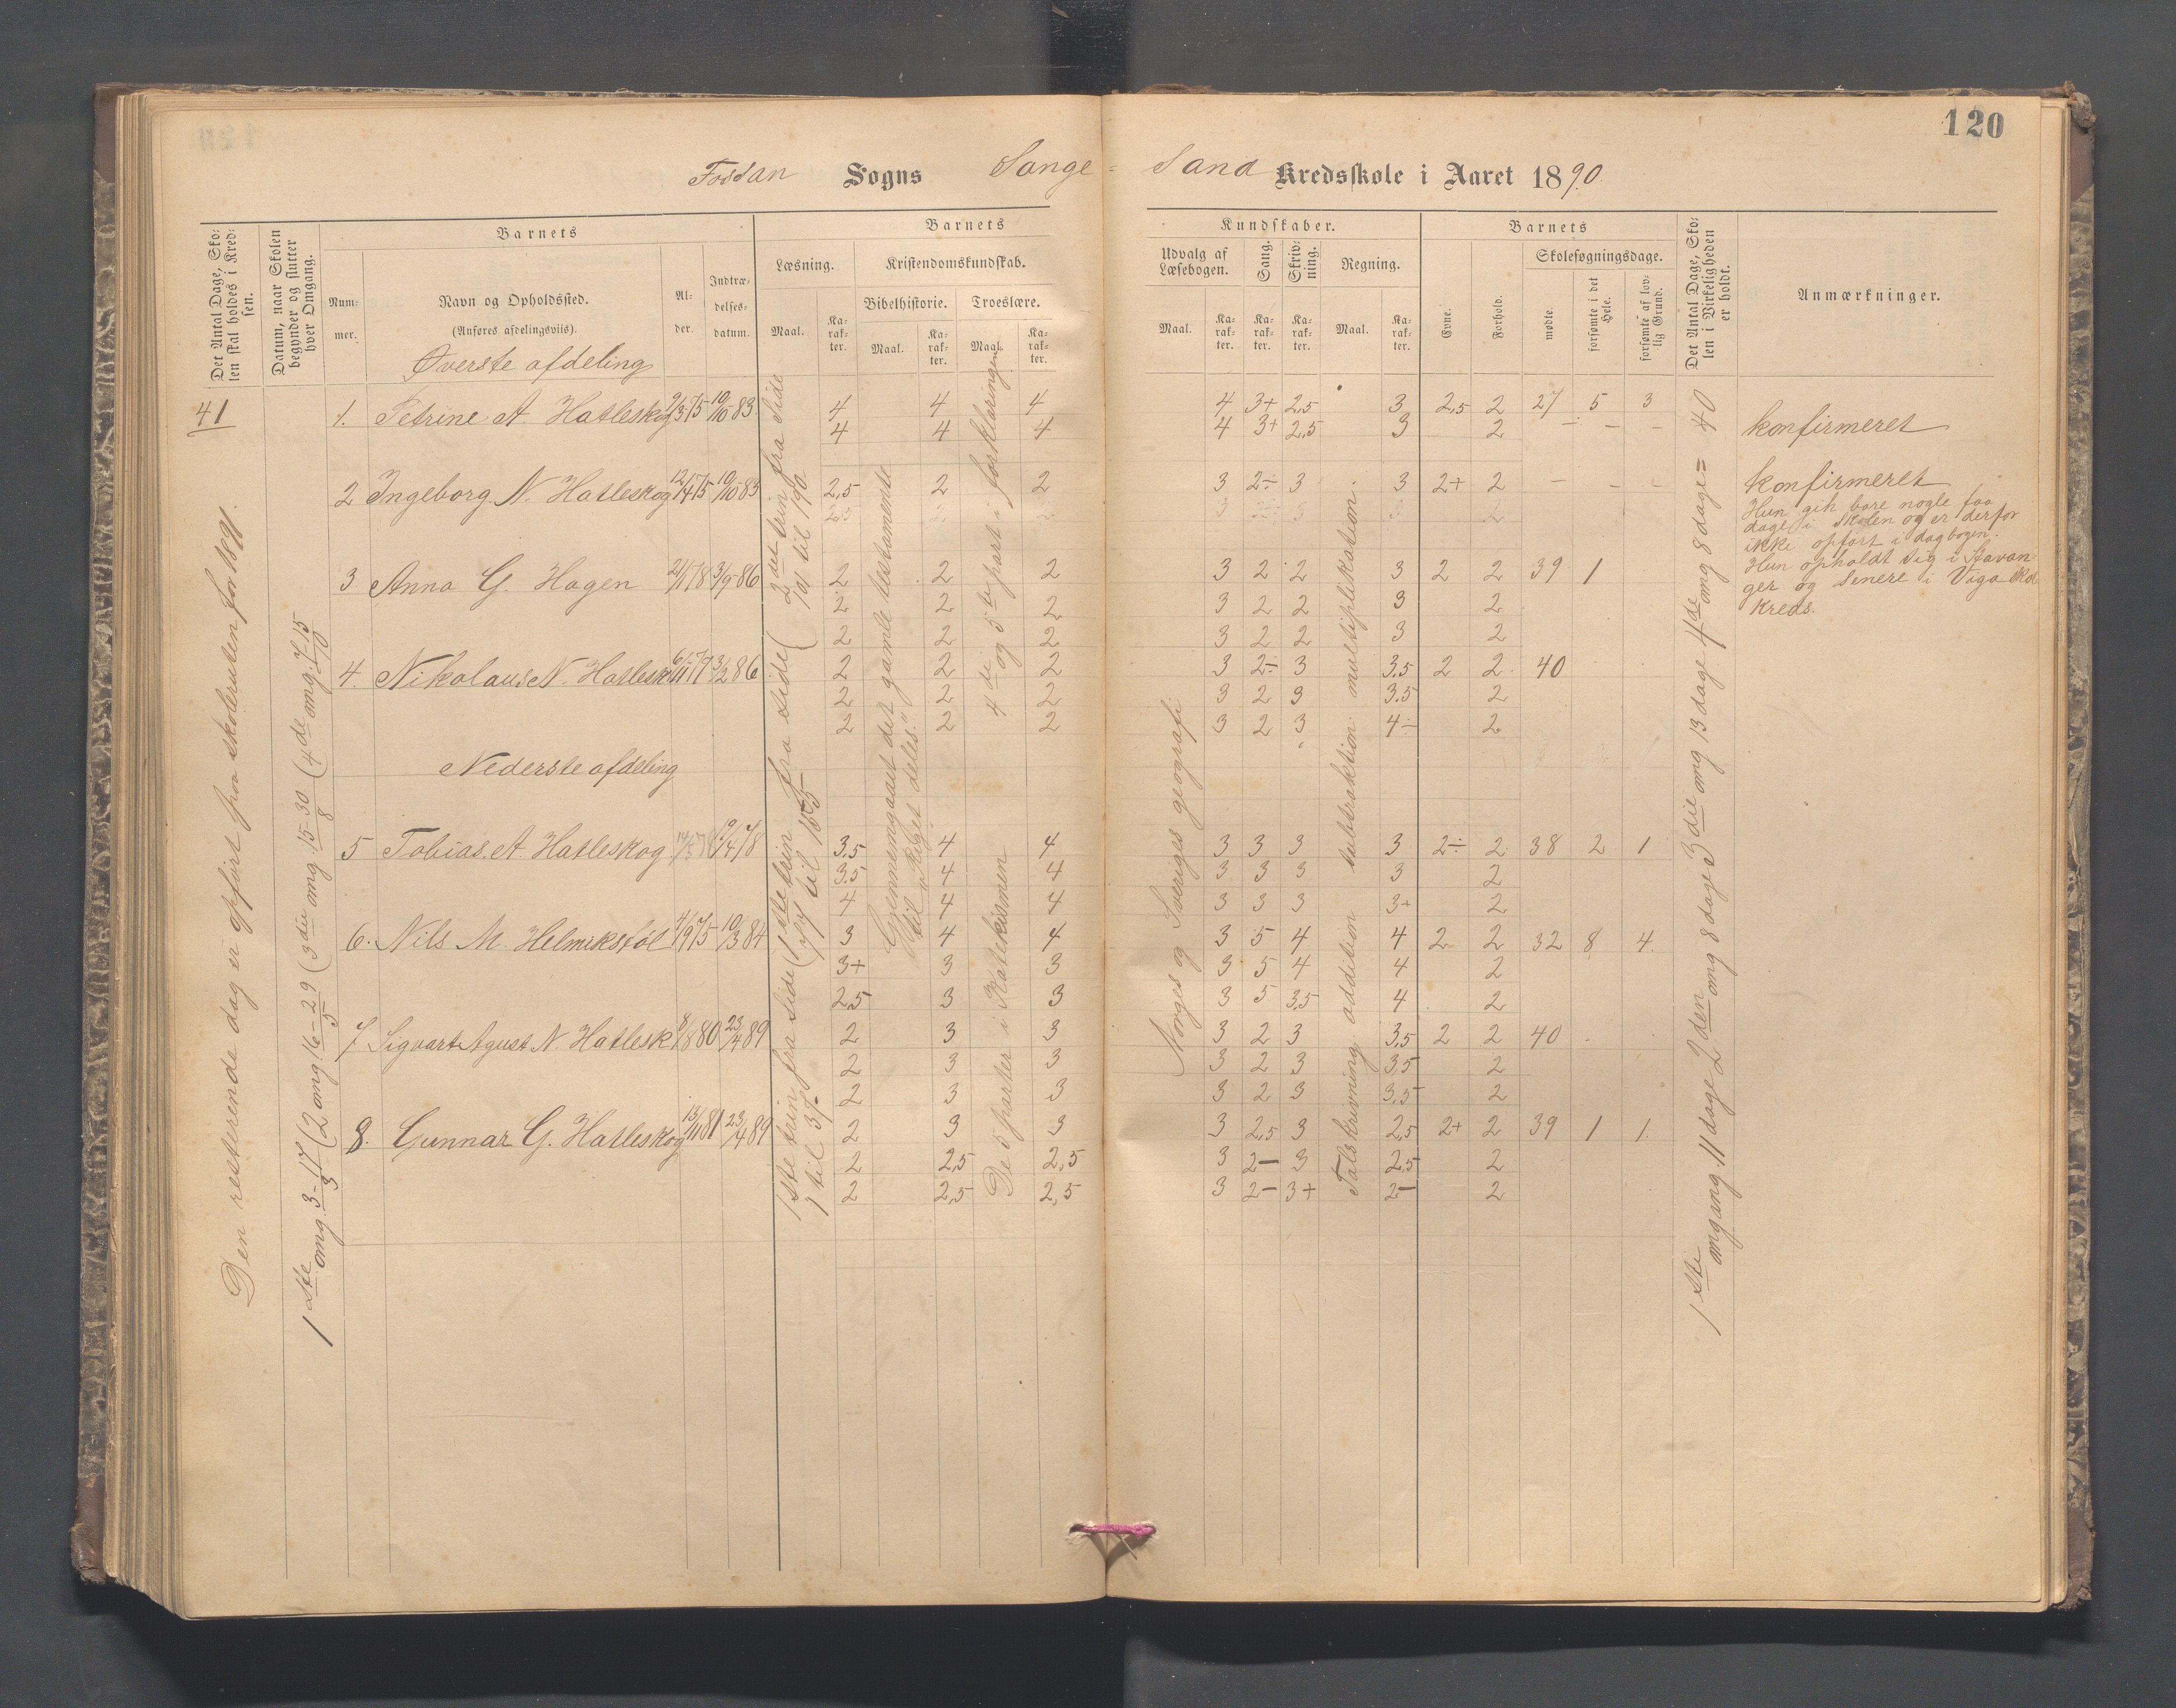 120
Fossan Sogns Songe-Sand Kredsskole i Aaret 1890.
Det Antal Dage, Skolen skal holdes i Kredsen.
Datum, naar Skolen begynder og slutter hver Omgang.
Barnets
Nummer.
Navn og Opholdssted.
(Anføres afdelingsviis).
Alder.
Indtrædelsesdatum.
Barnets
Læsning.
Maal.
Karakter.
Kristendomskundskab.
Bibelhistorie.
Maal.
Karakter.
Troeslære.
Maal.
Karakter.
Kundskaber.
Udvalg af Læsebogen.
Maal.
Karakter.
Sang.
Karakter.
Skrivning.
Karakter.
Regning.
Maal.
Karakter.
Barnets
Evne.
Forhold.
Skolesøgningsdage.
mødte.
forsømte i det Hele.
forsømte af lovlig Grund.
Det Antal Dage, Skolen i Virkeligheden er holdt.
Anmærkninger.
41
Den resterende dag er opført paa skoleruten for 1891.
1ste omg. 3-17/3 (2 omg 16-29/5 (3die omg. 15-30/8 (4de omg. 7-15/10
Øverste afdeling
1. Petrine A. Hatleskog 9/3 75 10/10 83 4 4 4 4 3+ 2,5 3 2,5 2 27 5 3 konfirmeret
4 4 4 4 3+ 2,5 3 2 - - -
2 Ingeborg N. Hatleskog 12/4 75 10/10 83 2,5 2 2 3 2÷ 3 3 2+ 2 - - - konfirmeret
Hun gik bare nogle faa
dage i skolen og er derfor
ikke opført i dagbogen.
3 Anna G. Hagen 2/11 78 3/9 86 2 2 2 3 2 2 3 2 2 39 1 Hun opholdt sig i Stavan-
ger og senere i Viga skol
kreds.
2 2 2 3 2 2 3 2
2 2 2 3 2 2 3 2
4. Nikolaus N. Hatlesk 6/11 77 3/2 86 2 2 2 3 2÷ 3 3.5 2 2 40
2 2 2 3 2 3 3.5 2
2 2 2 3 2 3 4÷ 2
Nederste afdeling
5 Tobias A. Hatleskog 3,5 4 4 3 3 3 3 2÷ 2 38 2 1
3.5 4 4 3 3 3 3 2
4 4 4 3 3 3 3+ 2
6. Nils M. Helmikstøl 4/9 75 10/3 84 3 4 4 3 5 4 4 2 2 32 8 4
3+ 3 3 3 5 4 4 2
2,5 3 3 3 5 3,5 4 2
7 Sigvart Agust N. Hatlesk 8/8 80 23/4 89 2 3 3 3 2 3 3,5 2 2 40
2 3 3 3 2 3 3,5 2
2 3 3 3 2 3 3,5 2
8. Gunnar G. Hatleskog 13/11 81 23/4 89 2 3 3 3 2,5 3 2,5 2+ 2 39 1 1
2 2,5 2,5 3 2- 3 2,5 2
2 2,5 2,5 3 2- 3+ 2- 2
1ste trin fra side 1 til 35
(1ste trin fra side 77 til 165
(2det trin fra side 101 til 190
Gjennemgaaet det gamle testamente
til "Riget deles."
De 5 parter i Katekismen
4de og 5te part i forklaringen
Norges og Sveriges geografi
Talskrivning. addition subtraktion multiplikation.
1ste omgang. 11 dage 2den omg 8 dage 3die omg 13 dage 4de omg 8 dage = 40